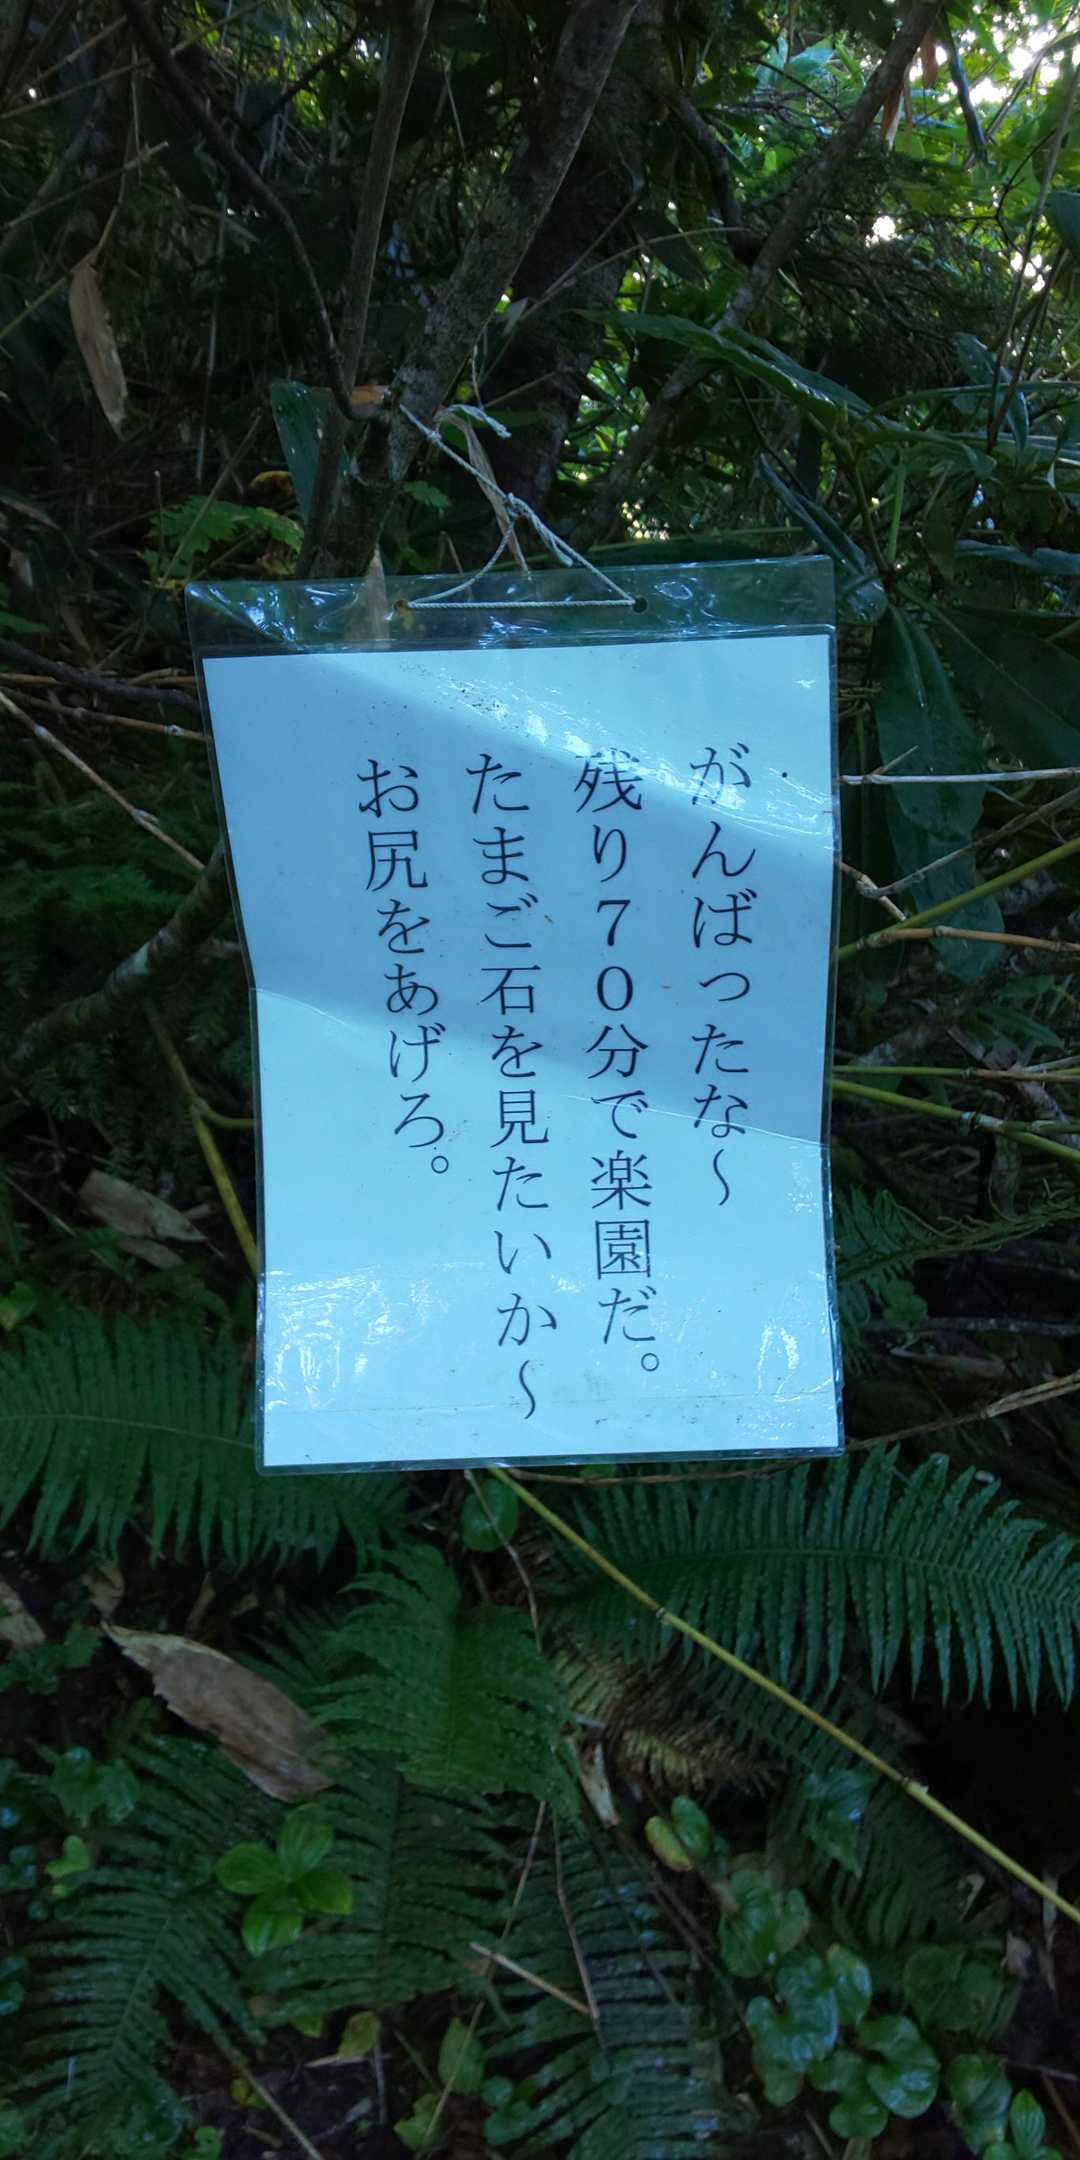 がんばったな～
残り７０分で楽園だ。
たまご石を見たいか～
お尻をあげろ。